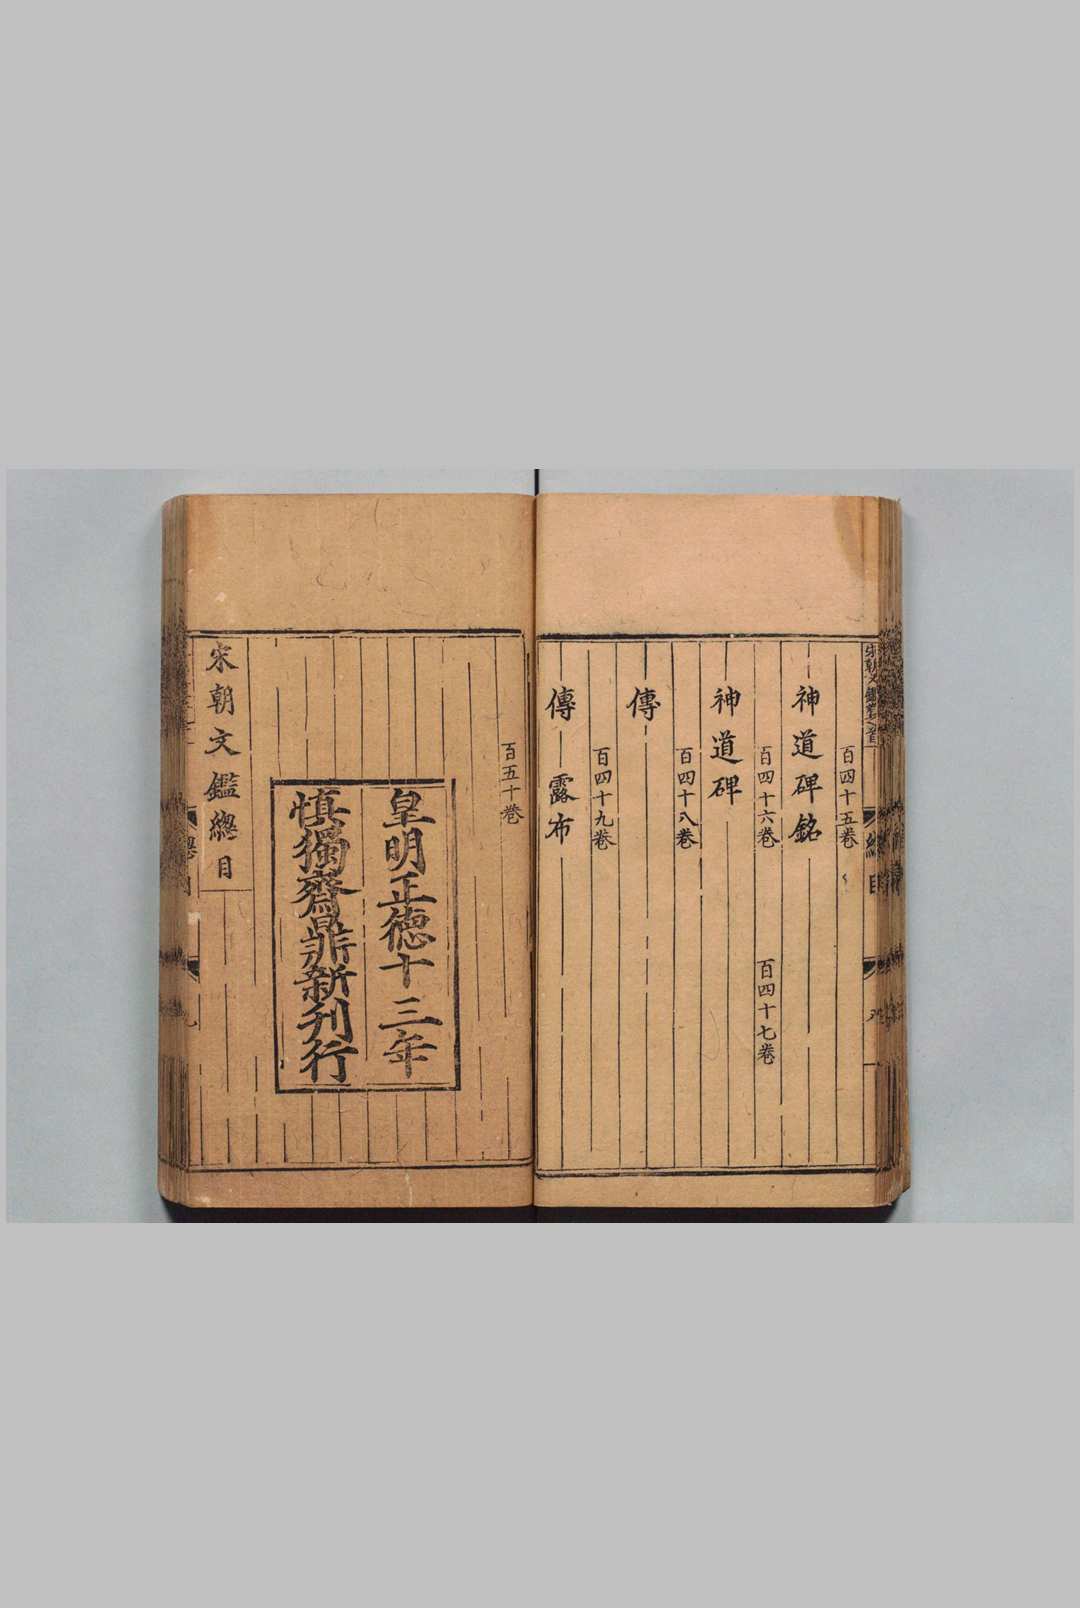 宋朝文鑑卷之首
總目
百四十五卷
神道碑銘
百四十六卷
百四十七卷
神道碑
百四十八卷
傳
百四十九卷
傳 露布
百五十卷
皇明正德十三年
慎獨齋鼎新刊行
宋朝文鑑總目